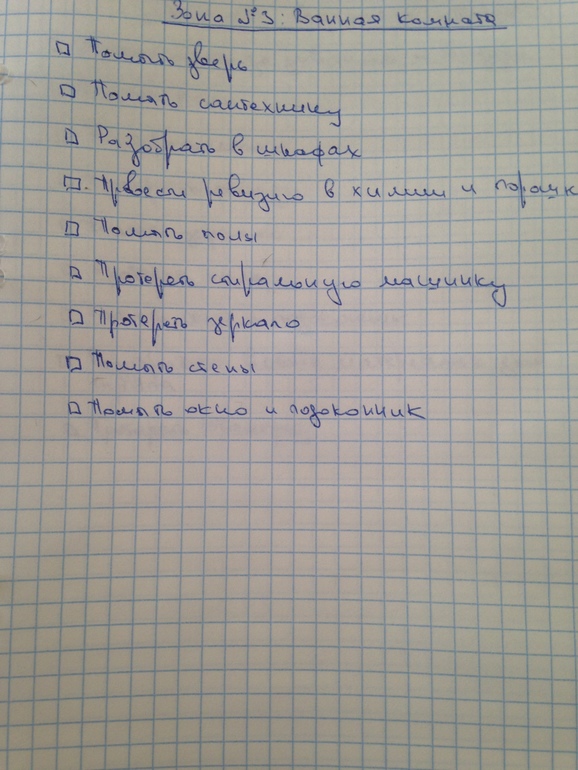 Зона №3: Ванная комната
Помыть дверь
Помыть сантехнику
Разобрать в шкафах
Провести ревизию в химии и порошк
Помыть полы
Протереть стиральную машинку
Протереть зеркало
Помыть стены
Помыть окно и подоконник